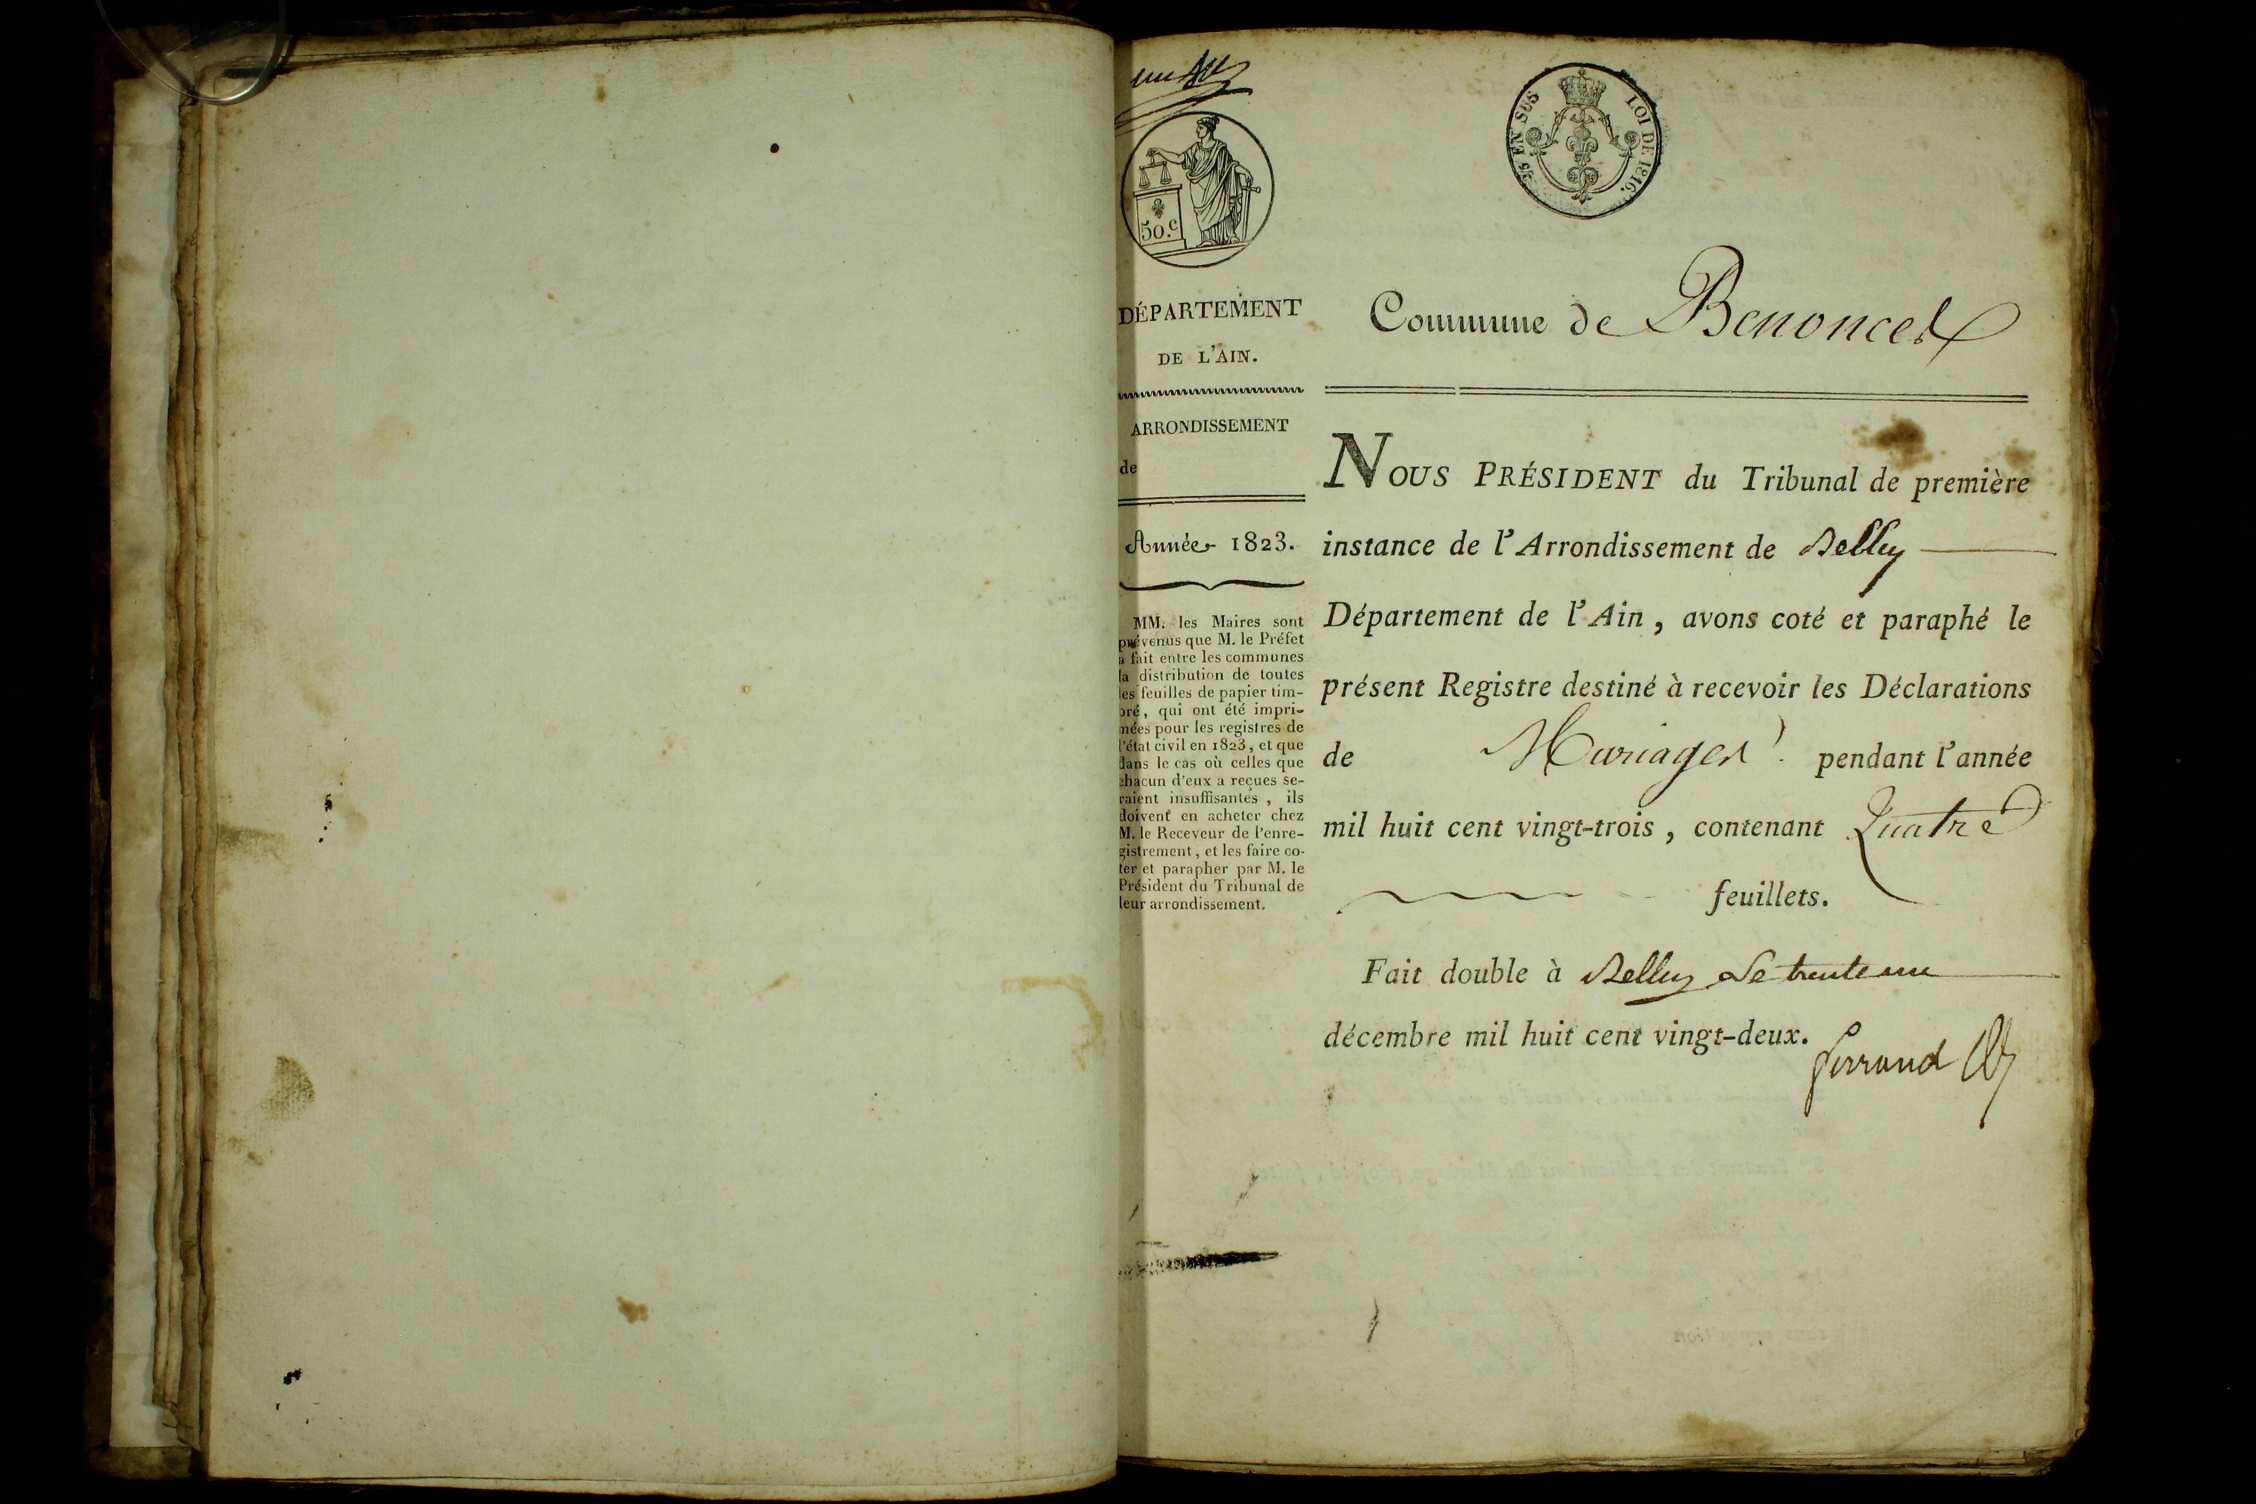 50.c
25 EN SUS
LOI DE 1816.
DÉPARTEMENT
DE L'AIN.
ARRONDISSEMENT
de
Année 1823.
MM. les Maires sont
prévenus que M. le Préfet
a fait entre les communes
la distribution de toutes
les feuilles de papier tim-
bré, qui ont été impri-
mées pour les registres de
l'état civil en 1823, et que
dans le cas où celles que
chacun d'eux a reçues se-
raient insuffisantes, ils
doivent en acheter chez
M. le Receveur de l'enre-
gistrement, et les faire co-
ter et parapher par M. le
Président du Tribunal de
leur arrondissement.
Commune de Benonces
NOUS PRÉSIDENT du Tribunal de première
instance de l'Arrondissement de Belley
Département de l'Ain, avons coté et paraphé le
présent Registre destiné à recevoir les Déclarations
de Mariages pendant l'année
mil huit cent vingt-trois, contenant Quatre
feuillets.
Fait double à Belley Le trente un
décembre mil huit cent vingt-deux.